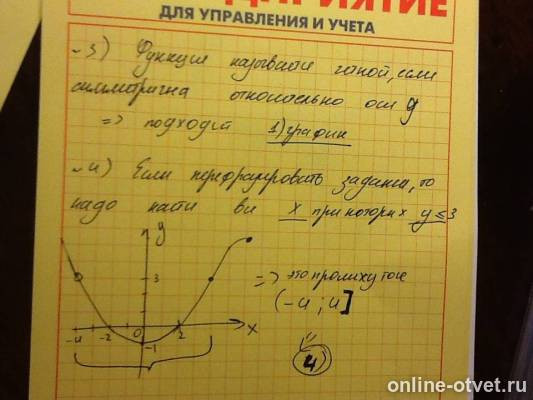 ПРИЯТИЕ
ДЛЯ УПРАВЛЕНИЯ И УЧЕТА
~3) Функция называют чатой, если
симметрична относительно оси y
=> подходит 1) график
~4) Если перефразировать задание, то
надо найти все x при которых y ≤ 3
y
3
=> это промежуток
(-4; 4]
-4 -2 0 2 x
-1
4)
online-otvet.ru